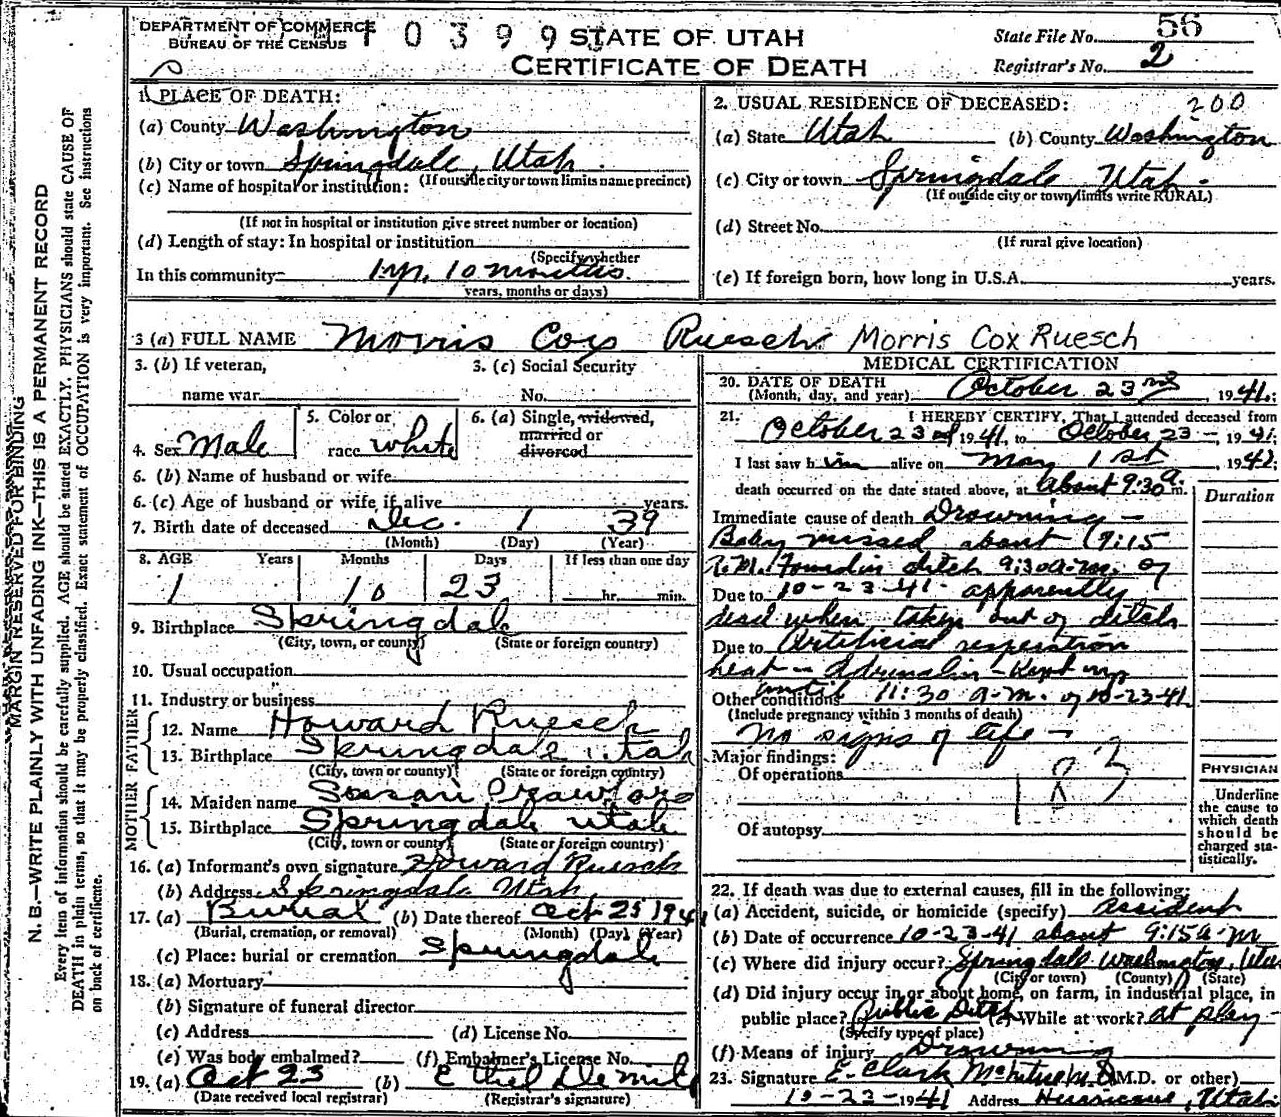 MARGIN RESERVED FOR BINDING
N. B.—WRITE PLAINLY WITH UNFADING INK—THIS IS A PERMANENT RECORD
Every item of information should be carefully supplied. AGE should be stated EXACTLY. PHYSICIANS should state CAUSE OF
DEATH in plain terms, so that it may be properly classified. Exact statement of OCCUPATION is very important. See instructions
on back of certificate.
DEPARTMENT OF COMMERCE
BUREAU OF THE CENSUS
10399
STATE OF UTAH
CERTIFICATE OF DEATH
State File No. 56
Registrar's No. 2
1. PLACE OF DEATH:
(a) County Washington
(b) City or town Springdale, Utah.
(If outside city or town limits name precinct)
(c) Name of hospital or institution:
(If not in hospital or institution give street number or location)
(d) Length of stay: In hospital or institution
(Specify whether
In this community 1 yr. 10 months.
years, months or days)
2. USUAL RESIDENCE OF DECEASED: 200
(a) State Utah (b) County Washington
(c) City or town Springdale, Utah.
(If outside city or town limits write RURAL)
(d) Street No.
(If rural give location)
(e) If foreign born, how long in U.S.A. years.
3 (a) FULL NAME Morris Cox Ruesch Morris Cox Ruesch
3. (b) If veteran,
name war
3. (c) Social Security
No.
4. Sex Male
5. Color or
race white
6. (a) Single, widowed,
married or
divorced
6. (b) Name of husband or wife
6. (c) Age of husband or wife if alive years.
7. Birth date of deceased Dec. 1 39
(Month) (Day) (Year)
8. AGE Years Months Days If less than one day
1 10 23 hr. min.
9. Birthplace Springdale
(City, town, or county) (State or foreign country)
10. Usual occupation
11. Industry or business
FATHER
12. Name Howard Ruesch
13. Birthplace Springdale Utah
(City, town or county) (State or foreign country)
MOTHER
14. Maiden name Crawford
15. Birthplace Springdale Utah
(City, town or county) (State or foreign country)
16. (a) Informant's own signature Howard Ruesch
(b) Address Springdale Utah
17. (a) Burial (b) Date thereof Oct 25 1941
(Burial, cremation, or removal) (Month) (Day) (Year)
(c) Place: burial or cremation Springdale
18. (a) Mortuary
(b) Signature of funeral director
(c) Address (d) License No.
(e) Was body embalmed? (f) Embalmer's License No.
19. (a) Oct 23 (b) Ethel DeMille
(Date received local registrar) (Registrar's signature)
MEDICAL CERTIFICATION
20. DATE OF DEATH October 23rd, 1941.
(Month, day, and year)
21. I HEREBY CERTIFY, That I attended deceased from
October 23rd 1941, to October 23—, 1941.
I last saw him alive on May 1st, 1941.
death occurred on the date stated above, at about 9:30 a. m.
Duration
Immediate cause of death Drowning—
Baby missed about (9:15
A.M. Found in ditch 9:30 a.m. of
Due to 10-23-41. apparently
dead when taken out of ditch
Due to Artificial respiration
heat — Adrenalin — Kept up
Other conditions until 11:30 a.m. of 10-23-41
(Include pregnancy within 3 months of death)
No signs of life —
Major findings:
Of operations
183
Of autopsy
PHYSICIAN
Underline
the cause to
which death
should be
charged sta-
tistically.
22. If death was due to external causes, fill in the following:
(a) Accident, suicide, or homicide (specify) Accident
(b) Date of occurrence 10-23-41 about 9:15 a.m
(c) Where did injury occur? Springdale Washington, Utah
(City or town) (County) (State)
(d) Did injury occur in or about home, on farm, in industrial place, in
public place? Public Ditch (e) While at work? at play—
(Specify type of place)
(f) Means of injury Drowning
23. Signature E. Clark (M.D. or other)
10-23-1941 Address Hurricane, Utah